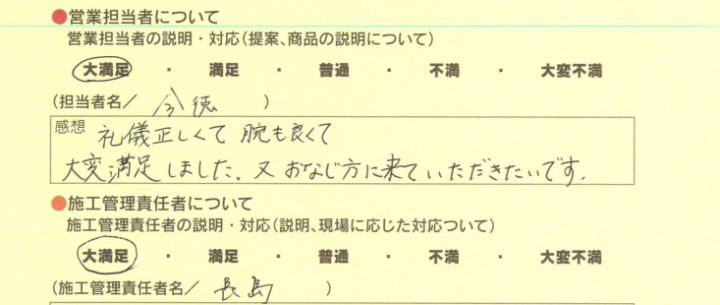 ●営業担当者について
営業担当者の説明・対応(提案、商品の説明について)
大満足 ・ 満足 ・ 普通 ・ 不満 ・ 大変不満
(担当者名/ )
感想 礼儀正しくて 腕も良くて
大変満足しました。又 おなじ方に来ていただきたいです。
●施工管理責任者について
施工管理責任者の説明・対応(説明、現場に応じた対応ついて)
大満足 ・ 満足 ・ 普通 ・ 不満 ・ 大変不満
(施工管理責任者名/ 長島 )